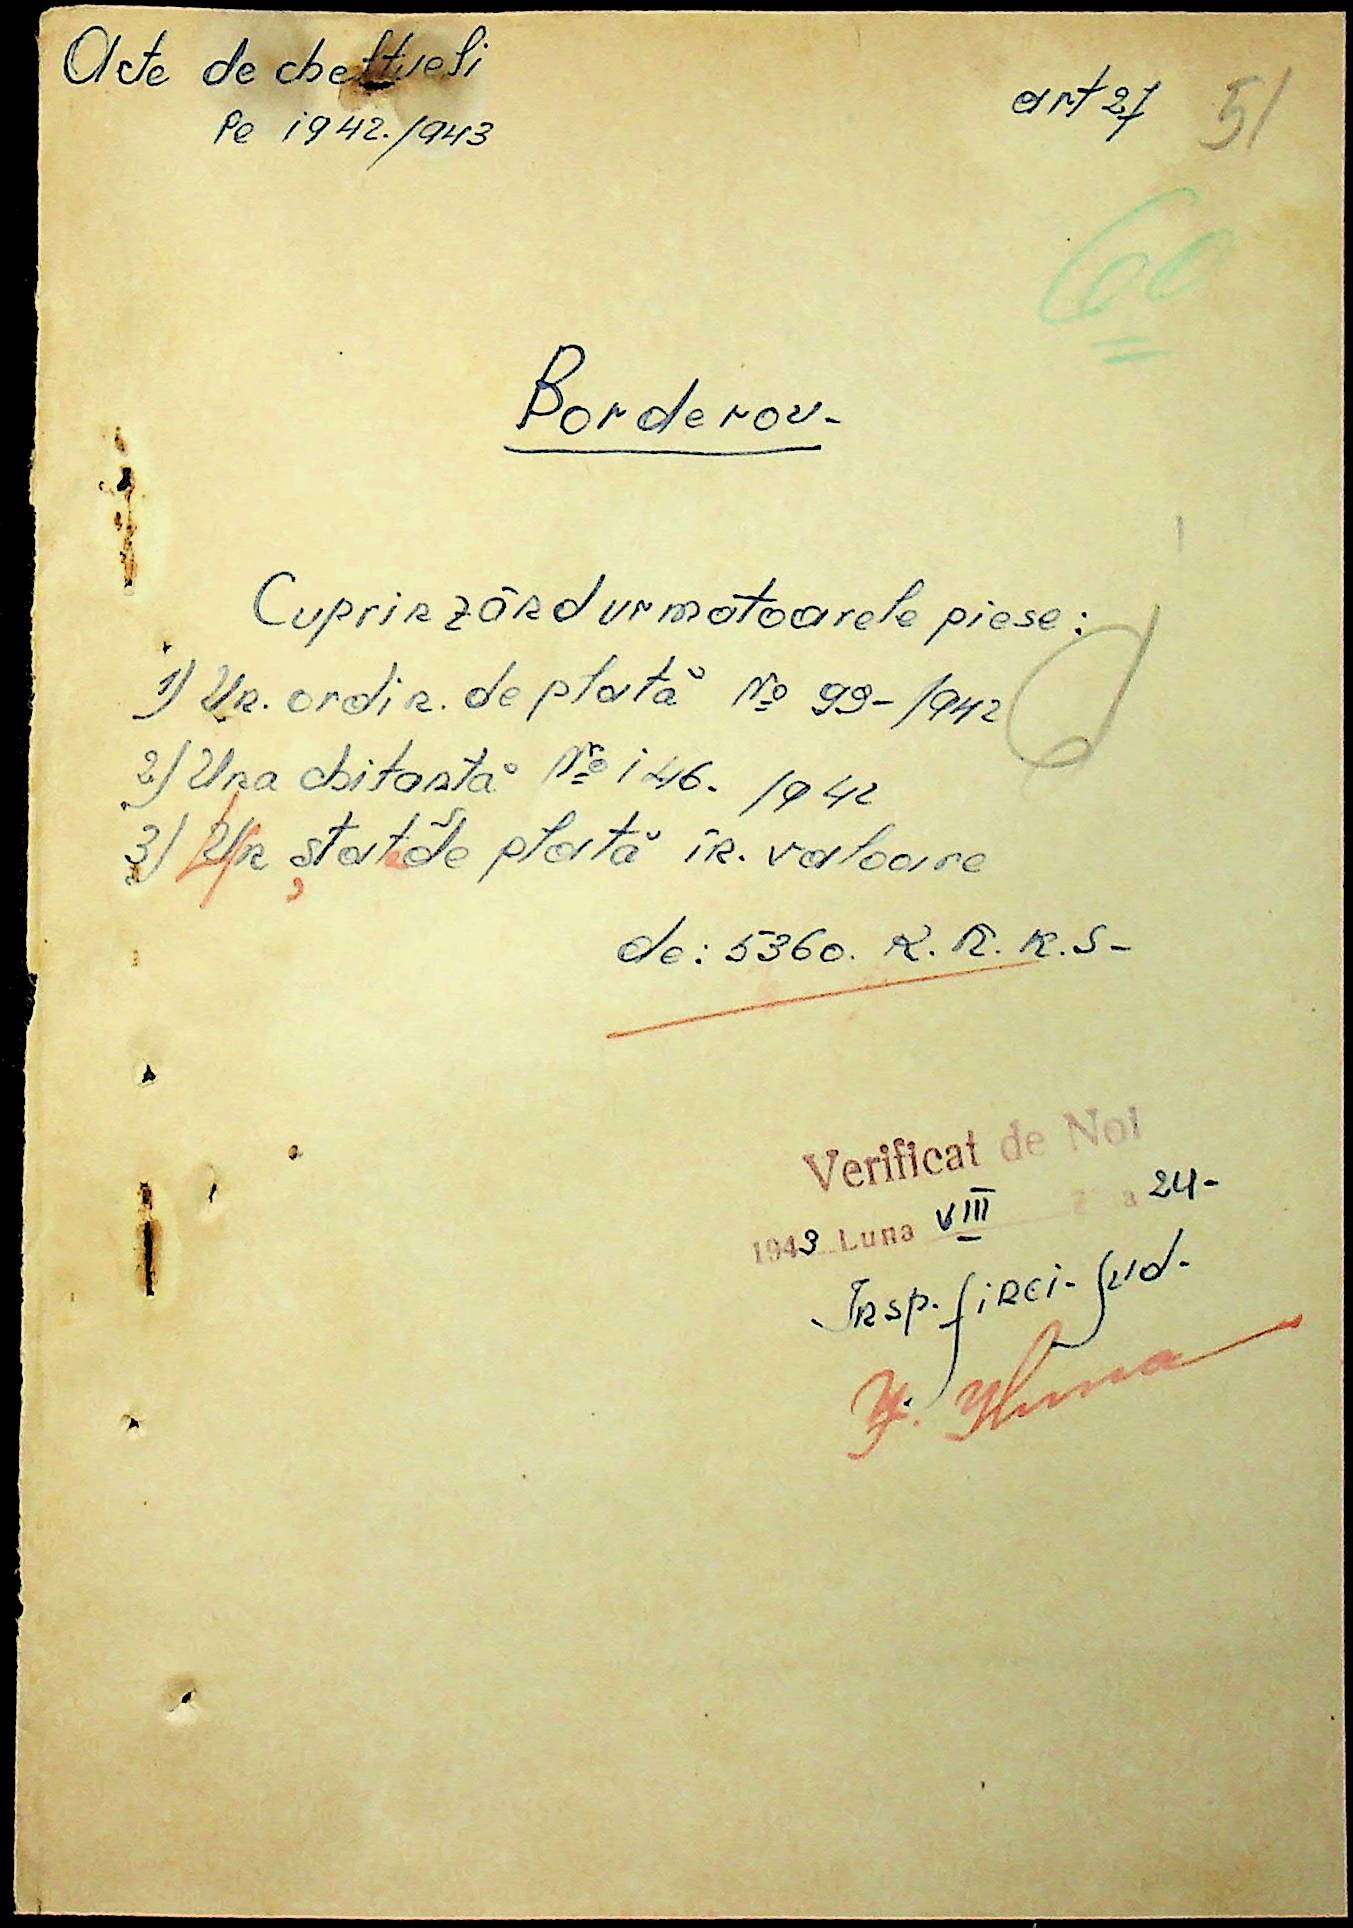 Acte de cheltueli
Pe 1942./943
art 27
51
60
Borderou-
Cuprinzând urmatoarele piese:
1) Un. ordin. de plată No 99-/942
2) Una chitantă No 146. /942
3) Un stat de plată în. valoare
de: 5360. R.K.K.S-
Verificat de Noi
1943 Luna VIII Ziua 24-
Insp. finci. Jud.